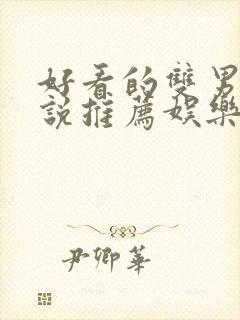 好看的雙男
說推薦娛樂
尹卿華